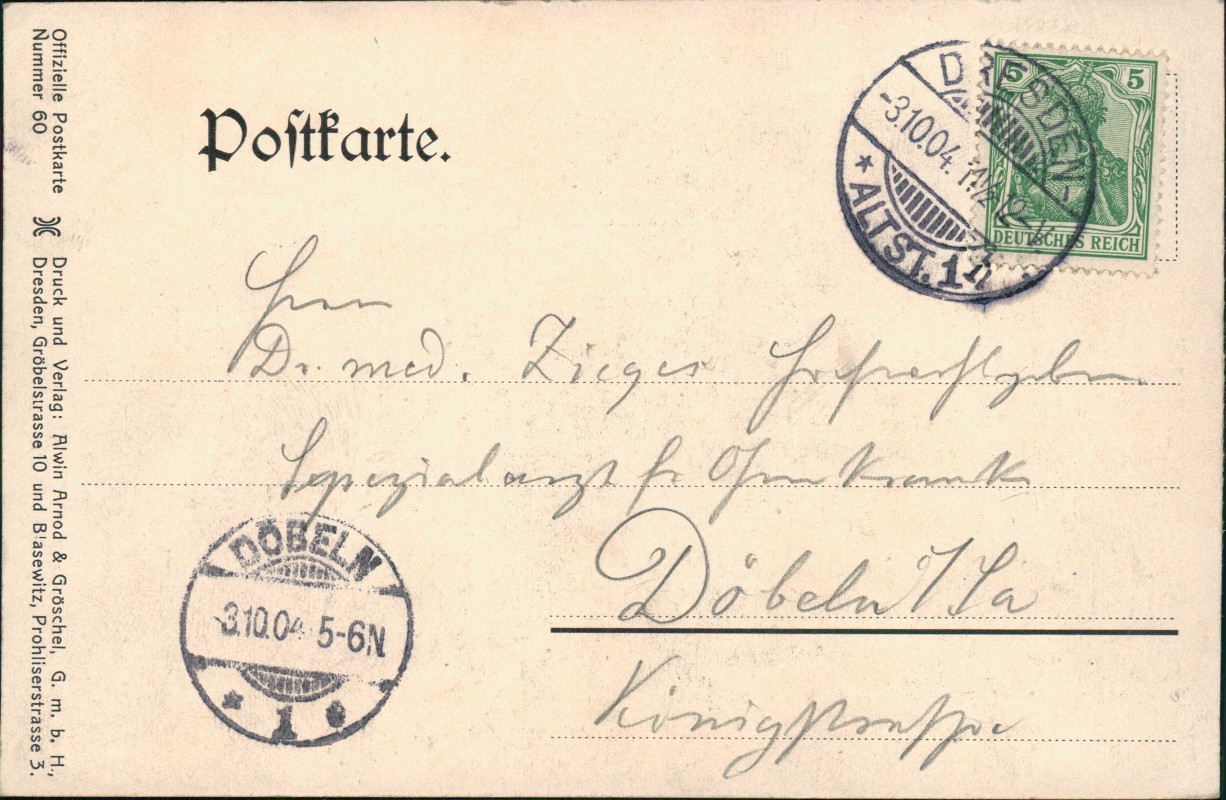 Offizielle Postkarte
Nummer 60
Druck und Verlag: Alwin Arnod & Gröschel, G. m. b. H.,
Dresden, Gröbelstrasse 10 und Blasewitz, Prohliserstrasse 3.
Poſtkarte.
5 5
DEUTSCHES REICH
DRESDEN-
-3.10.04. 11½-12V
* ALTST. 1 n
Herrn
Dr. med. Zieger
Spezialarzt fr Ohrenkranke
Döbeln i/Sa
Königstrasse
DÖBELN
-3.10.04 5-6N.
* 1 e